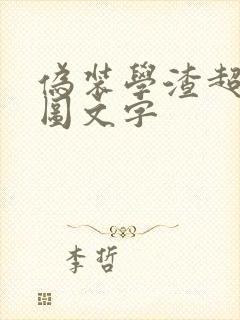 偽裝學渣超
圖文字
李哲